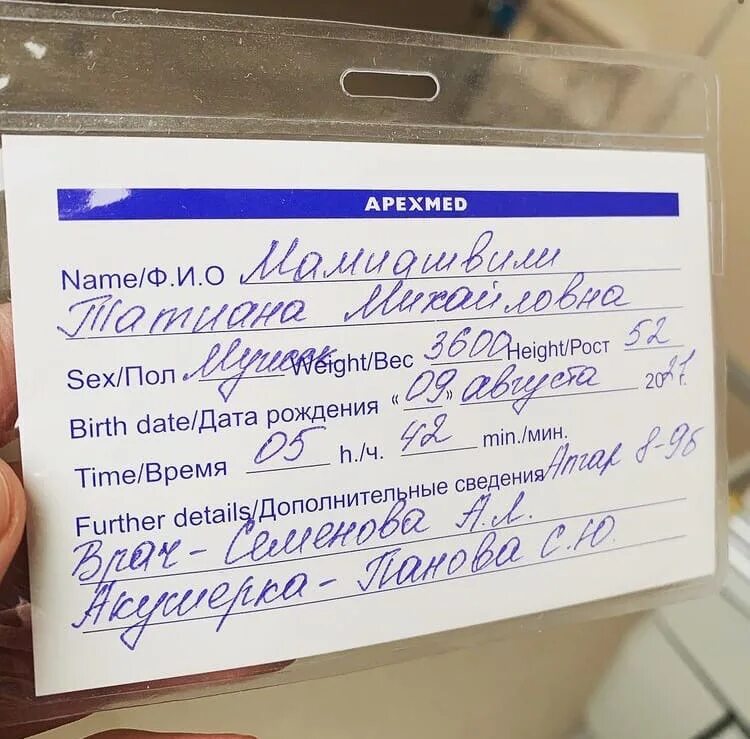 APEXMED
Name/Ф.И.О Мамиашвили
Татиана Михайловна
Sex/Пол Мужск Weight/Вес 3600 Height/Рост 52
Birth date/Дата рождения «09» августа 2021г.
Time/Время 05 h./ч. 42 min./мин.
Further details/Дополнительные сведения Апгар 8-9б
Врач - Семенова А.Л.
Акушерка - Панова С.Ю.